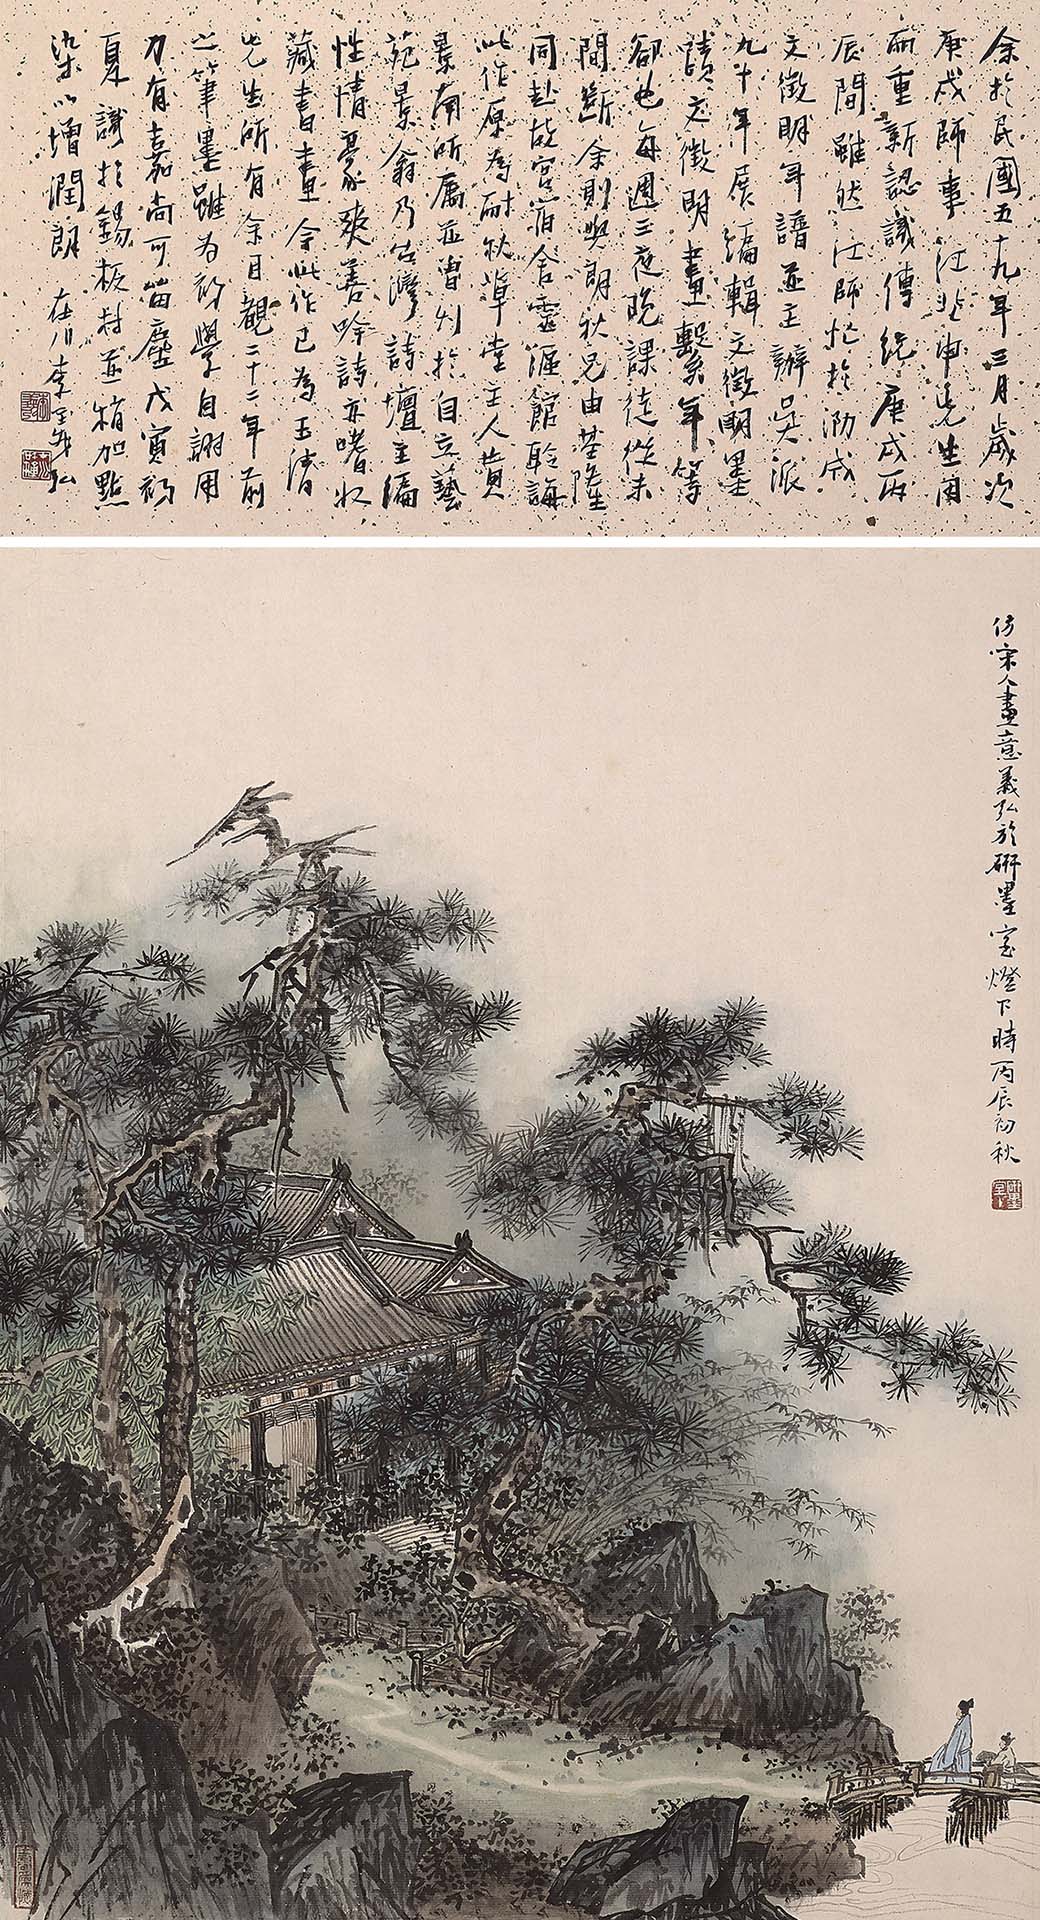 余於民國五十九年三月歲次
庚戌師事江兆申先生開
而重新認識傳統庚戌丙
辰間雖然江師忙於瀏覽
文徵明年譜並主辦吳派
九十年展編輯文徵明墨
蹟文徵明畫繫年等
卻也每週三夜晚課徒從未
間斷余則與朗秋兄由基隆
同赴故宮宿舍靈漚館聆誨
此作原為耐秋草堂主人黃
景南所屬並曾刊於自立藝
苑景翁乃台灣詩壇主編
性情豪爽善吟詩亦嗜收
藏書畫今此作已為玉清
兄生所有余目觀二十二年前
之筆墨雖為初學自謝用
力有嘉尚可留塵戊寅初
夏識於錫板村並稍加點
染以增潤朗 在川李義弘
仿宋人畫意義弘於研墨室燈下時丙辰初秋
研墨室